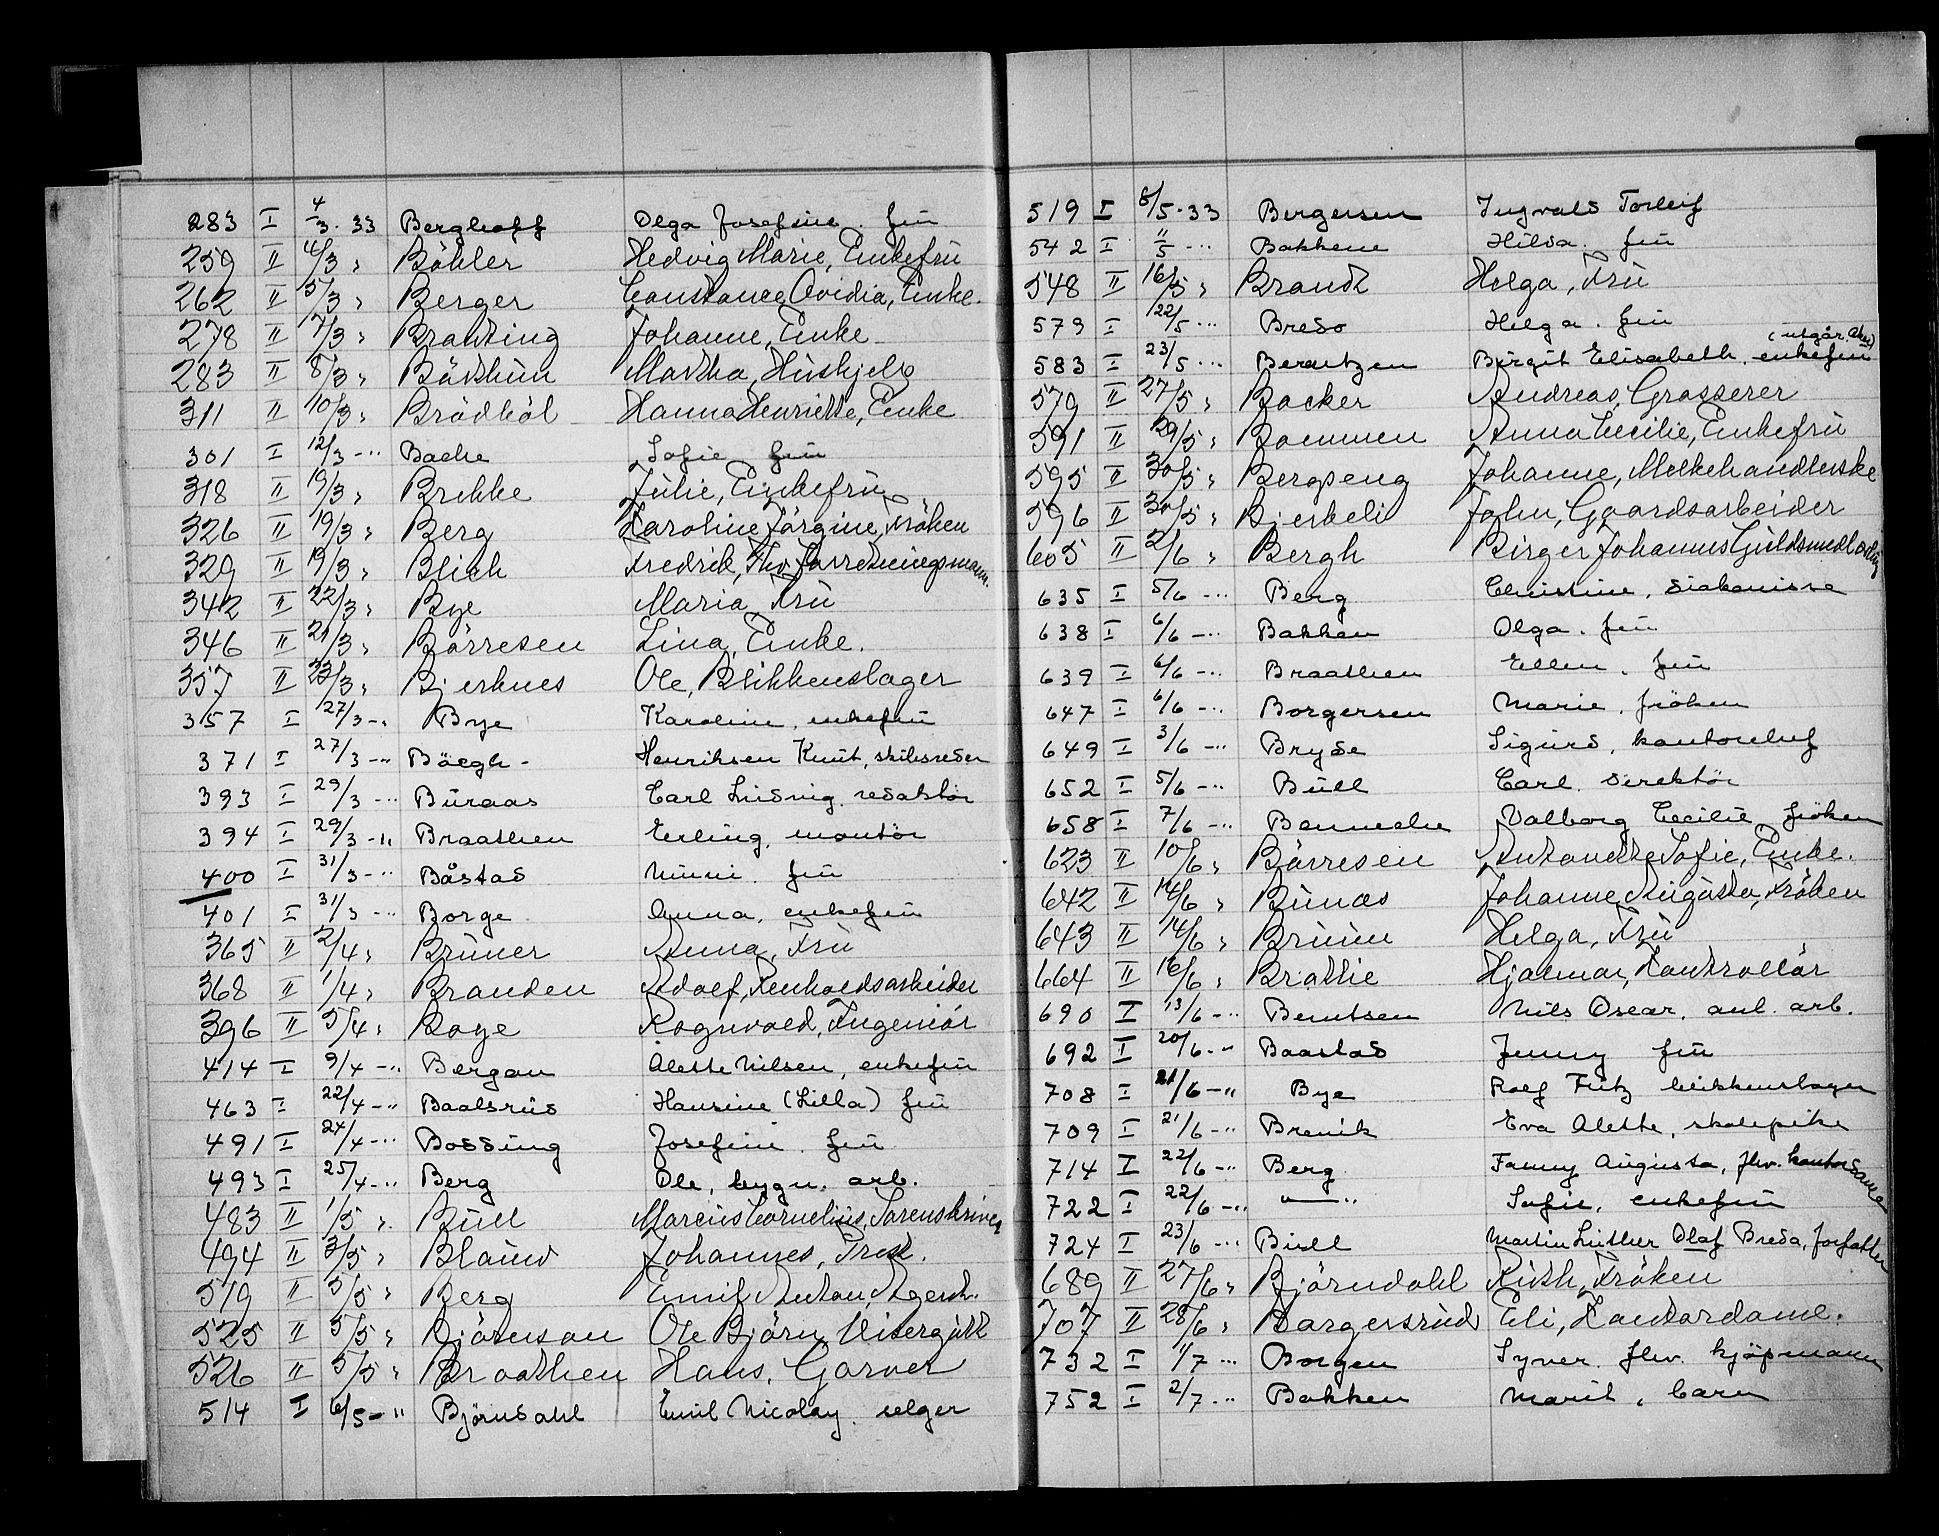 283 I 4/3. 33 Berghoff Olga Josefine. frü
259 II 4/3 " Böhler Hedvig Marie, Enkefrü
262 II 5/3 " Berger Constance Ovidia, Enke.
278 II 7/3 " Branting Johanne, Enke
283 II 8/3 " Bårthun Martha, Hüshjelp
311 II 10/3 " Brödhöl Hanna Henriette, Enke
301 I 12/3 -" Bache Sofie frü
318 II 19/3 " Brekke Jülie, Enkefrü
326 II 19/3 " Berg Karoline Jörgine, Fröken
329 II 19/3 " Blich Fredrik, Fhv. Forretningsmann.
342 II 22/3 " Bye Maria, Frü
346 II 21/3 " Börresen Lina, Enke.
357 II 23/3 " Bjerknes Ole, Blikkenslager
357 I 27/3 -" Bye Karoline, enkefrü
371 I 27/3 -" Böegh - Henriksen Knüt, skibsreder
393 I 29/3 -" Büraas Carl Lüdvig, redaktör
394 I 29/3 -" Braathen Erling, montör
400 I 31/3 -" Båstad Minni. frü
401 I 31/3 -" Borge Anna, enkefrü
365 II 2/4 " Brüner Anna, Frü
368 II 1/4 " Branden Adolf, Renholdsarbeider
396 II 5/4 " Boye Rognvald, Ingeniör
414 I 9/4 -" Bergan Alette Nilsen, enkefrü
463 I 22/4 -" Baalsrüd Hansine (Lilla) frü
491 I 24/4 -" Bossüng Josefine. frü
493 I 25/4 -" Berg Ole, bygn. arb.
483 II 1/5 " Büll Marcüs Cornelius, Sorenskriver
494 II 3/5 " Blaüw Johannes,
519 II 5/5 " Berg Emil Anton, Agent.
525 II 5/5 " Björnson Ole Björn, Visergütt
526 II 5/5 " Braathen Hans, Garver
514 I 6/5 -" Björndahl Emil Nicolay. selger
519 I 8/5. 33 Bergersen Ingvald Torleif
542 I 11/5 -" Bakkene Hilda. frü
548 II 16/5 " Brandt Helga, Frü
573 I 22/5 -" Bredo Helga. frü
(utgår
583 I 23/5 -" Berntzen Birgit Elisabeth. enkefrü
579 II 27/5 " Backer Andreas, Grosserer
591 II 29/5 " Bommen Anna Cecilie, Enkefrü
595 II 30/5 " Bergseng Johanne, Melkehandlerske
596 II 30/5 " Bjerkeli John, Gaardsarbeider
605 II 2/6 " Bergh Birger Johannes Güldsmed
635 I 5/6 -" Berg Christine, diakonisse
638 I 6/6 -" Bakken Olga. frü
639 I 6/6 -" Braathen Ellen, frü
647 I 6/6 -" Borgersen Marie, fröken
649 I 3/6 -" Bryde Sigürd, kontorchef
652 I 5/6 -" Büll Carl. direktör
658 I 7/6 -" Bonnevie Valborg Cecilie, fröken
623 II 10/6 " Börresen Antonette Sofie, Enke.
642 II 14/6 " Bünæs Johanne Aügüsta, Fröken
643 II 14/6 " Brüün Helga, Frü
664 II 16/6 " Brattie Hjalmar, Kontrollör
690 I 13/6 -" Berntsen Nils Oscar, anl. arb.
692 I 20/6 -" Baastad Jenny frü
708 I 21/6 -" Bye Rolf Fritz blikkenslager
709 I 21/6 -" Brevik Eva Alette, skolepike
714 I 22/6 -" Berg Fanny Augusta, fhv. kontordame
722 I 22/6 -" —" Sofie, enkefrü
724 I 23/6 -" Büll Martin Lüther Olaf Breda, forfatter
689 II 27/6 " Björndahl Rüth, Fröken
707 II 28/6 " Borgersrüd Eli, Kontordame.
732 I 1/7 -" Borgen Syver. fhv. kjöpmann
752 I 2/7 -" Bakken Marit, barn